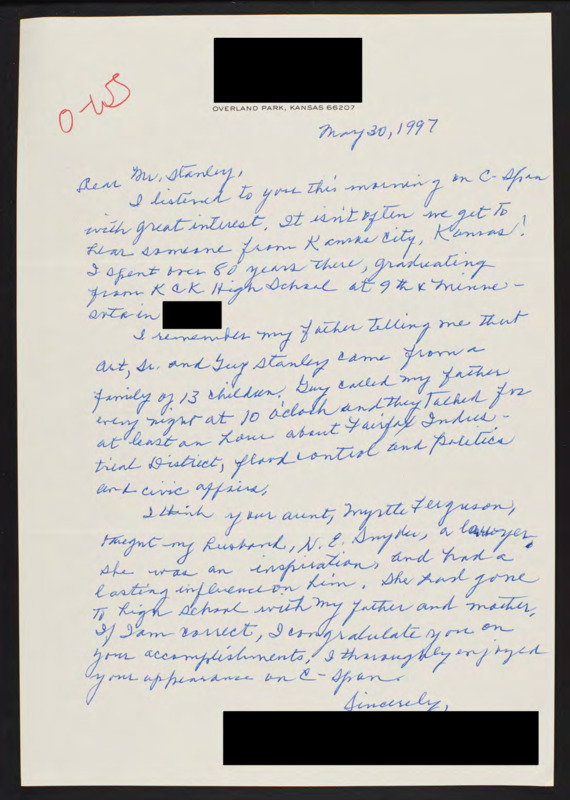 O-WS
OVERLAND PARK, KANSAS 66207
May 30, 1997
Dear Mr. Stanley,
I listened to you this morning on C-Span
with great interest. It isn't often we get to
hear someone from Kansas City, Kansas!
I spent over 80 years there, graduating
from K C K High School at 9th & Minne-
sota in
I remember my father telling me that
Art, Sr. and Guy Stanley came from a
family of 13 children. Guy called my father
every night at 10 o'clock and they talked for
at least an hour about Fairfax Indus-
trial District, flood control and politics
and civic affairs.
I think your aunt, Myrtle Ferguson,
taught my husband, N. E. Snyder, a lawyer.
She was an inspiration, and had a
lasting influence on him. She had gone
to high school with my father and mother.
If I am correct, I congratulate you on
your accomplishments. I thoroughly enjoyed
your appearance on C-Span.
Sincerely,